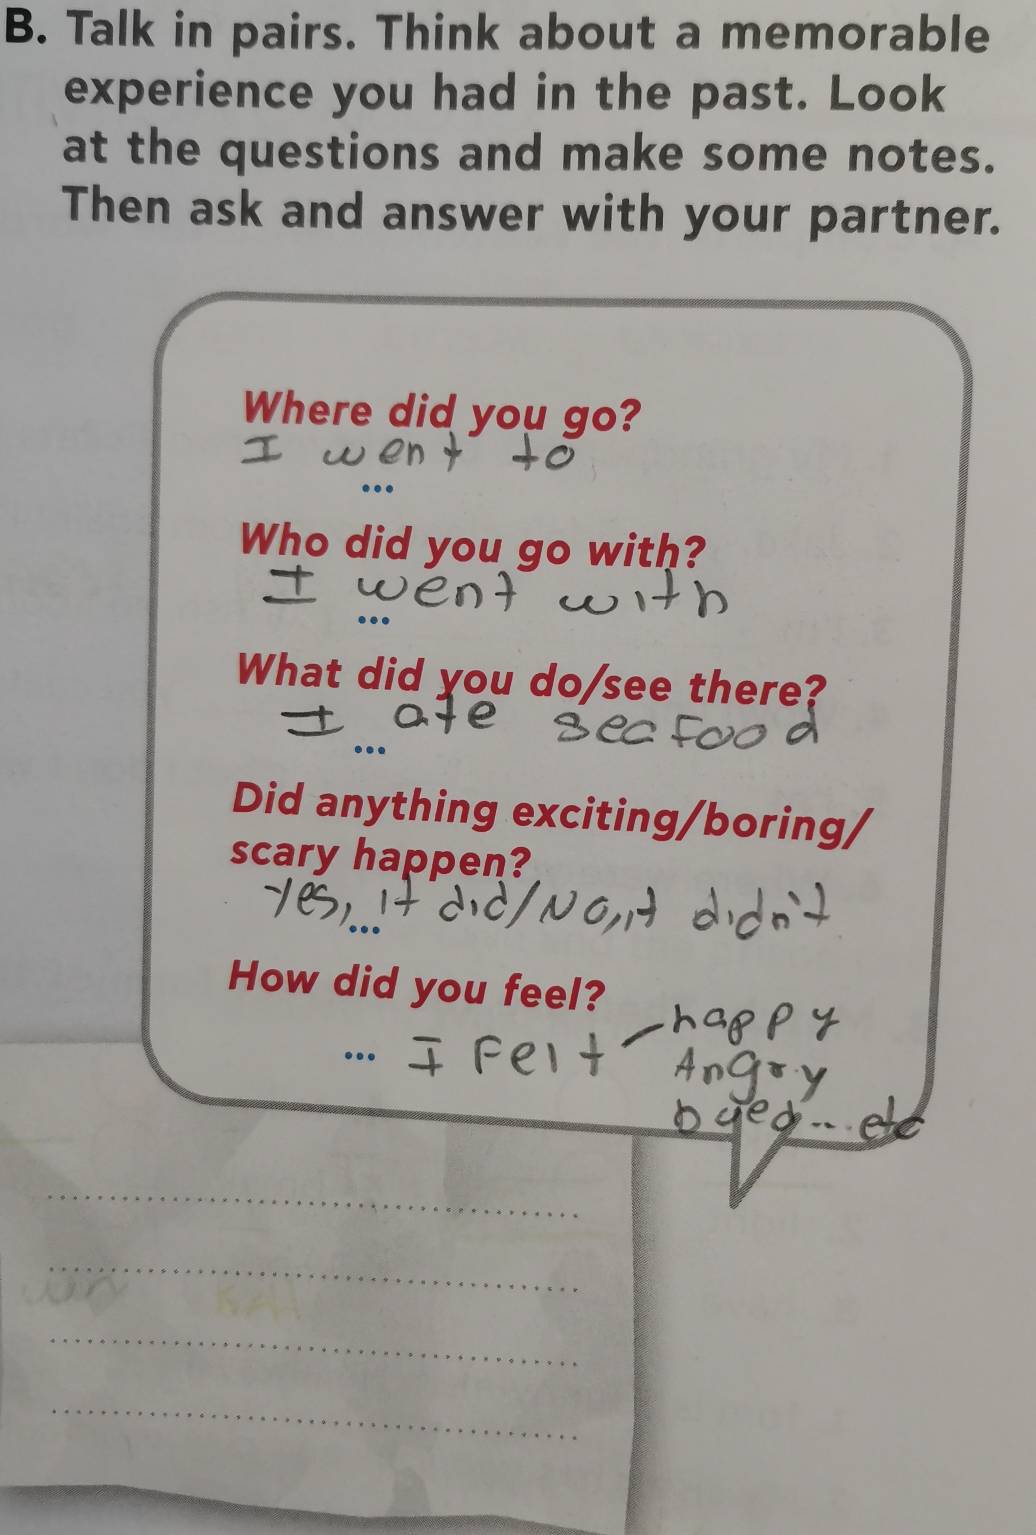 B. Talk in pairs. Think about a memorable
experience you had in the past. Look
at the questions and make some notes.
Then ask and answer with your partner.
Where did you go?
I went to
...
Who did you go with?
I went with
...
What did you do/see there?
I ate seafood
...
Did anything exciting/boring/
scary happen?
Yes, it did/No, it didn't
...
How did you feel?
... I Felt happy
Angry
... etc